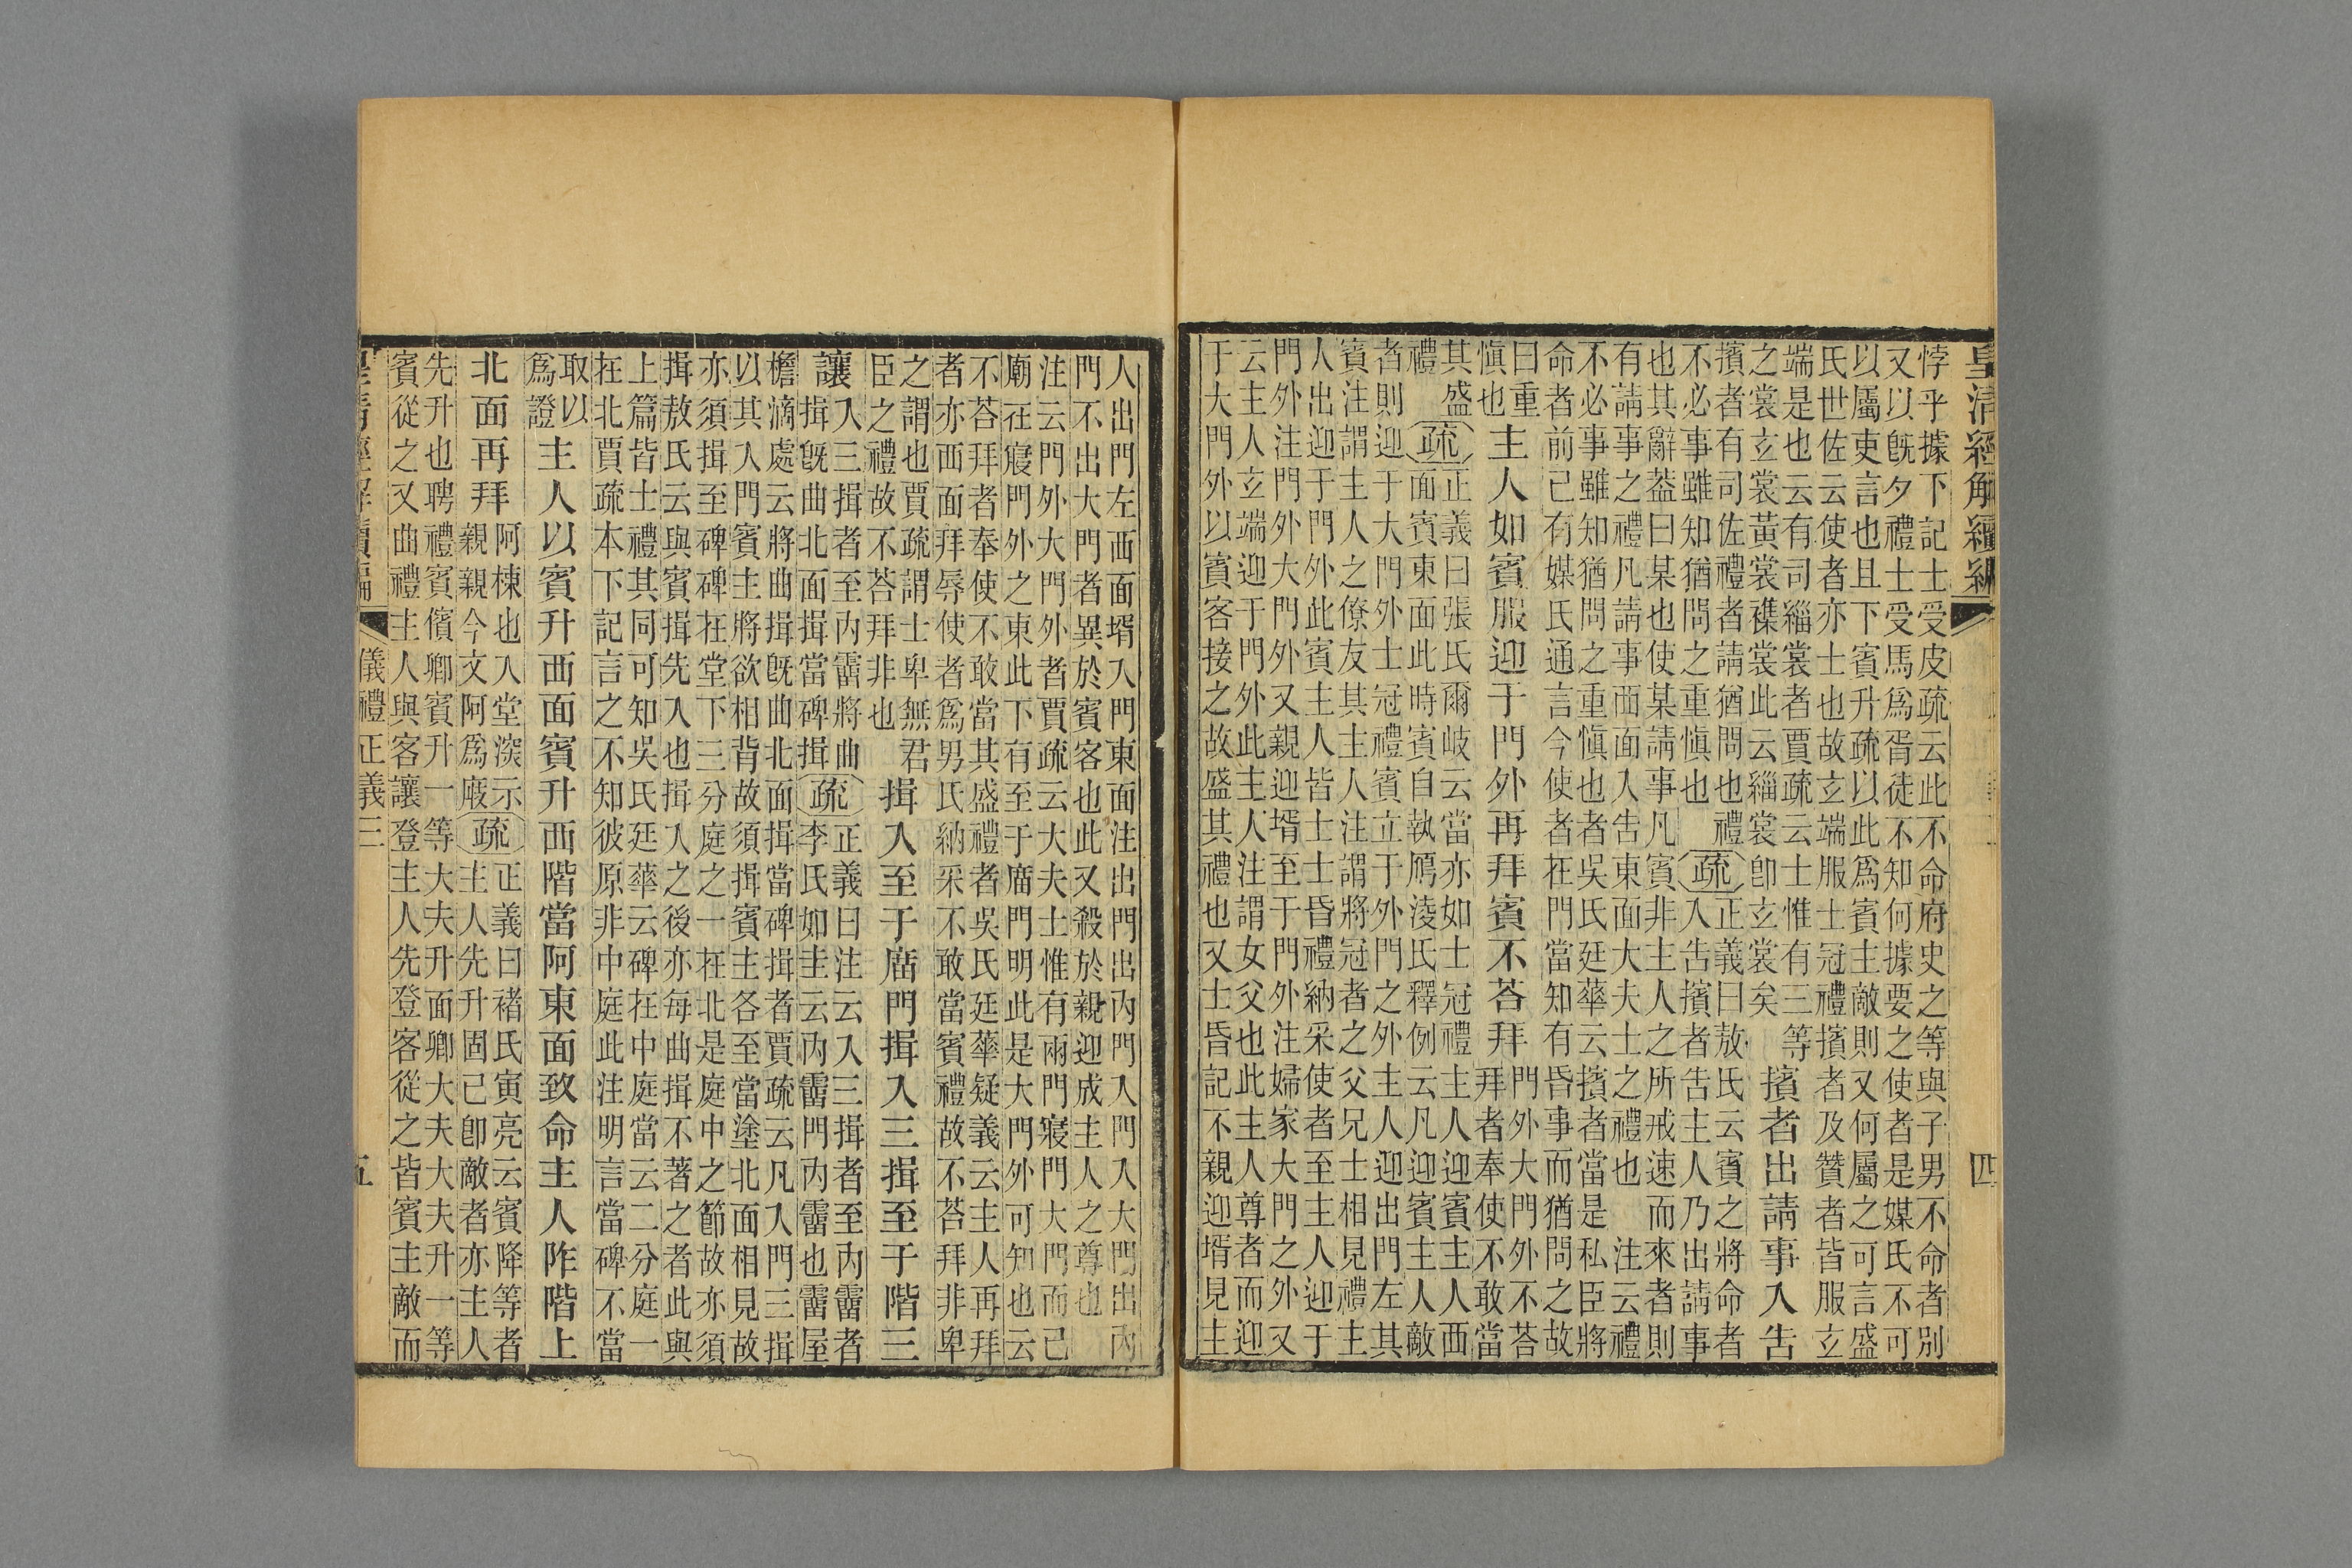 皇清經解續編 四
悖乎據下記士受皮疏云此不命府史之等與子男不命者別
又以旣夕禮士受馬爲胥徒不知何據要之使者是媒氏不可
以屬吏言也且下賓升疏以此爲賓主敵則又何屬之可言盛
氏世佐云使者亦士也故玄端服士冠禮擯者及贊者皆服玄
端是也云有司緇裳者賈疏云士惟有三等
之裳玄裳黃裳襍裳此云緇裳卽玄裳矣
擯者出請事入告
擯者有司佐禮者請猶問也禮
不必事雖知猶問之重愼也
疏
正義曰敖氏云賓之將命者
入告擯者告主人乃出請事
也其辭葢曰某也使某請事凡賓非主人之所戒速而來者則
有請事之禮凡請事西面入告東面大夫士之禮也 注云禮
不必事雖知猶問之重愼也者吳氏廷華云擯者當是私臣將
命者前已有媒氏通言今使者在門當知有昏事而猶問之故
曰重
愼也
主人如賓服迎于門外再拜賓不荅拜
門外大門外不荅
拜者奉使不敢當
其盛
禮
疏
正義曰張氏爾岐云當亦如士冠禮主人迎賓主人西
面賓東面此時賓自執鴈淩氏釋例云凡迎賓主人敵
者則迎于大門外士冠禮賓立于外門之外主人迎出門左其
賓注謂主人之僚友其主人注謂將冠者之父兄士相見禮主
人出迎于門外此賓主人皆士士昏禮納采使者至主人迎于
門外注門外大門外又親迎壻至于門外注婦家大門之外又
云主人玄端迎于門外此主人注謂女父也此主人尊者而迎
于大門外以賓客接之故盛其禮也又士昏記不親迎壻見主
人出門左西面壻入門東面注出門出內門入門入大門出內
門不出大門者異於賓客也此又殺於親迎成主人之尊也
注云門外大門外者賈疏云大夫士惟有兩門寢門大門而已
廟在寢門外之東此下有至于廟門明此是大門外可知也云
不荅拜者奉使不敢當其盛禮者吳氏廷華疑義云主人再拜
者亦西面拜辱使者爲男氏納采不敢當賓禮故不荅拜非卑
之謂也賈疏謂士卑無君
臣之禮故不荅拜非也
揖入至于廟門揖入三揖至于階三
讓
入三揖者至內霤將曲
揖旣曲北面揖當碑揖
疏
正義曰注云入三揖者至內霤者
李氏如圭云內霤門內霤也霤屋
檐滴處云將曲揖旣曲北面揖當碑揖者賈疏云凡入門三揖
以其入門賓主將欲相背故須揖賓主各至當塗北面相見故
亦須揖至碑碑在堂下三分庭之一在北是庭中之節故亦須
揖敖氏云與賓揖先入也揖入之後亦每曲揖不著之者此與
上篇皆士禮其同可知吳氏廷華云碑在中庭當云二分庭一
在北賈疏本下記言之不知彼原非中庭此注明言當碑不當
取以
爲證
主人以賓升西面賓升西階當阿東面致命主人阼階上
北面再拜
阿棟也入堂深示
親親今文阿爲庪
疏
正義曰褚氏寅亮云賓降等者
主人先升固已卽敵者亦主人
先升也聘禮賓儐卿賓升一等大夫升面卿大夫大夫升一等
賓從之又曲禮主人與客讓登主人先登客從之皆賓主敵而
皇清經解續編 儀禮正義三 五